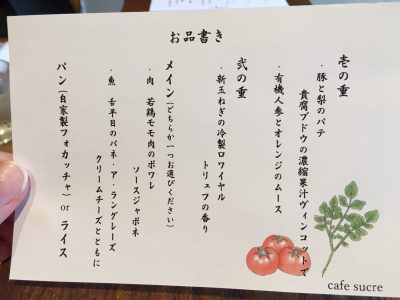 お品書き
壱の重
・豚と梨のパテ
貴腐ブドウの濃縮果汁ヴィンコットで
・有機人参とオレンジのムース
弐の重
・新玉ねぎの冷製ロワイヤル
トリュフの香り
メイン(どちらか一つお選びください)
・肉 若鶏モモ肉のポワレ
ソースジャポネ
・魚 舌平目のパネ・ア・ラングレーズ
クリームチーズとともに
パン(自家製フォカッチャ) or ライス
cafe sucre